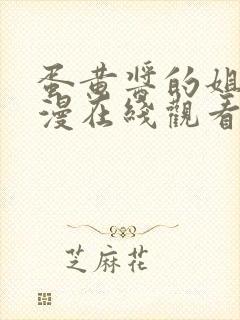 蛋黄酱的姐
漫在线觀看
芝麻花